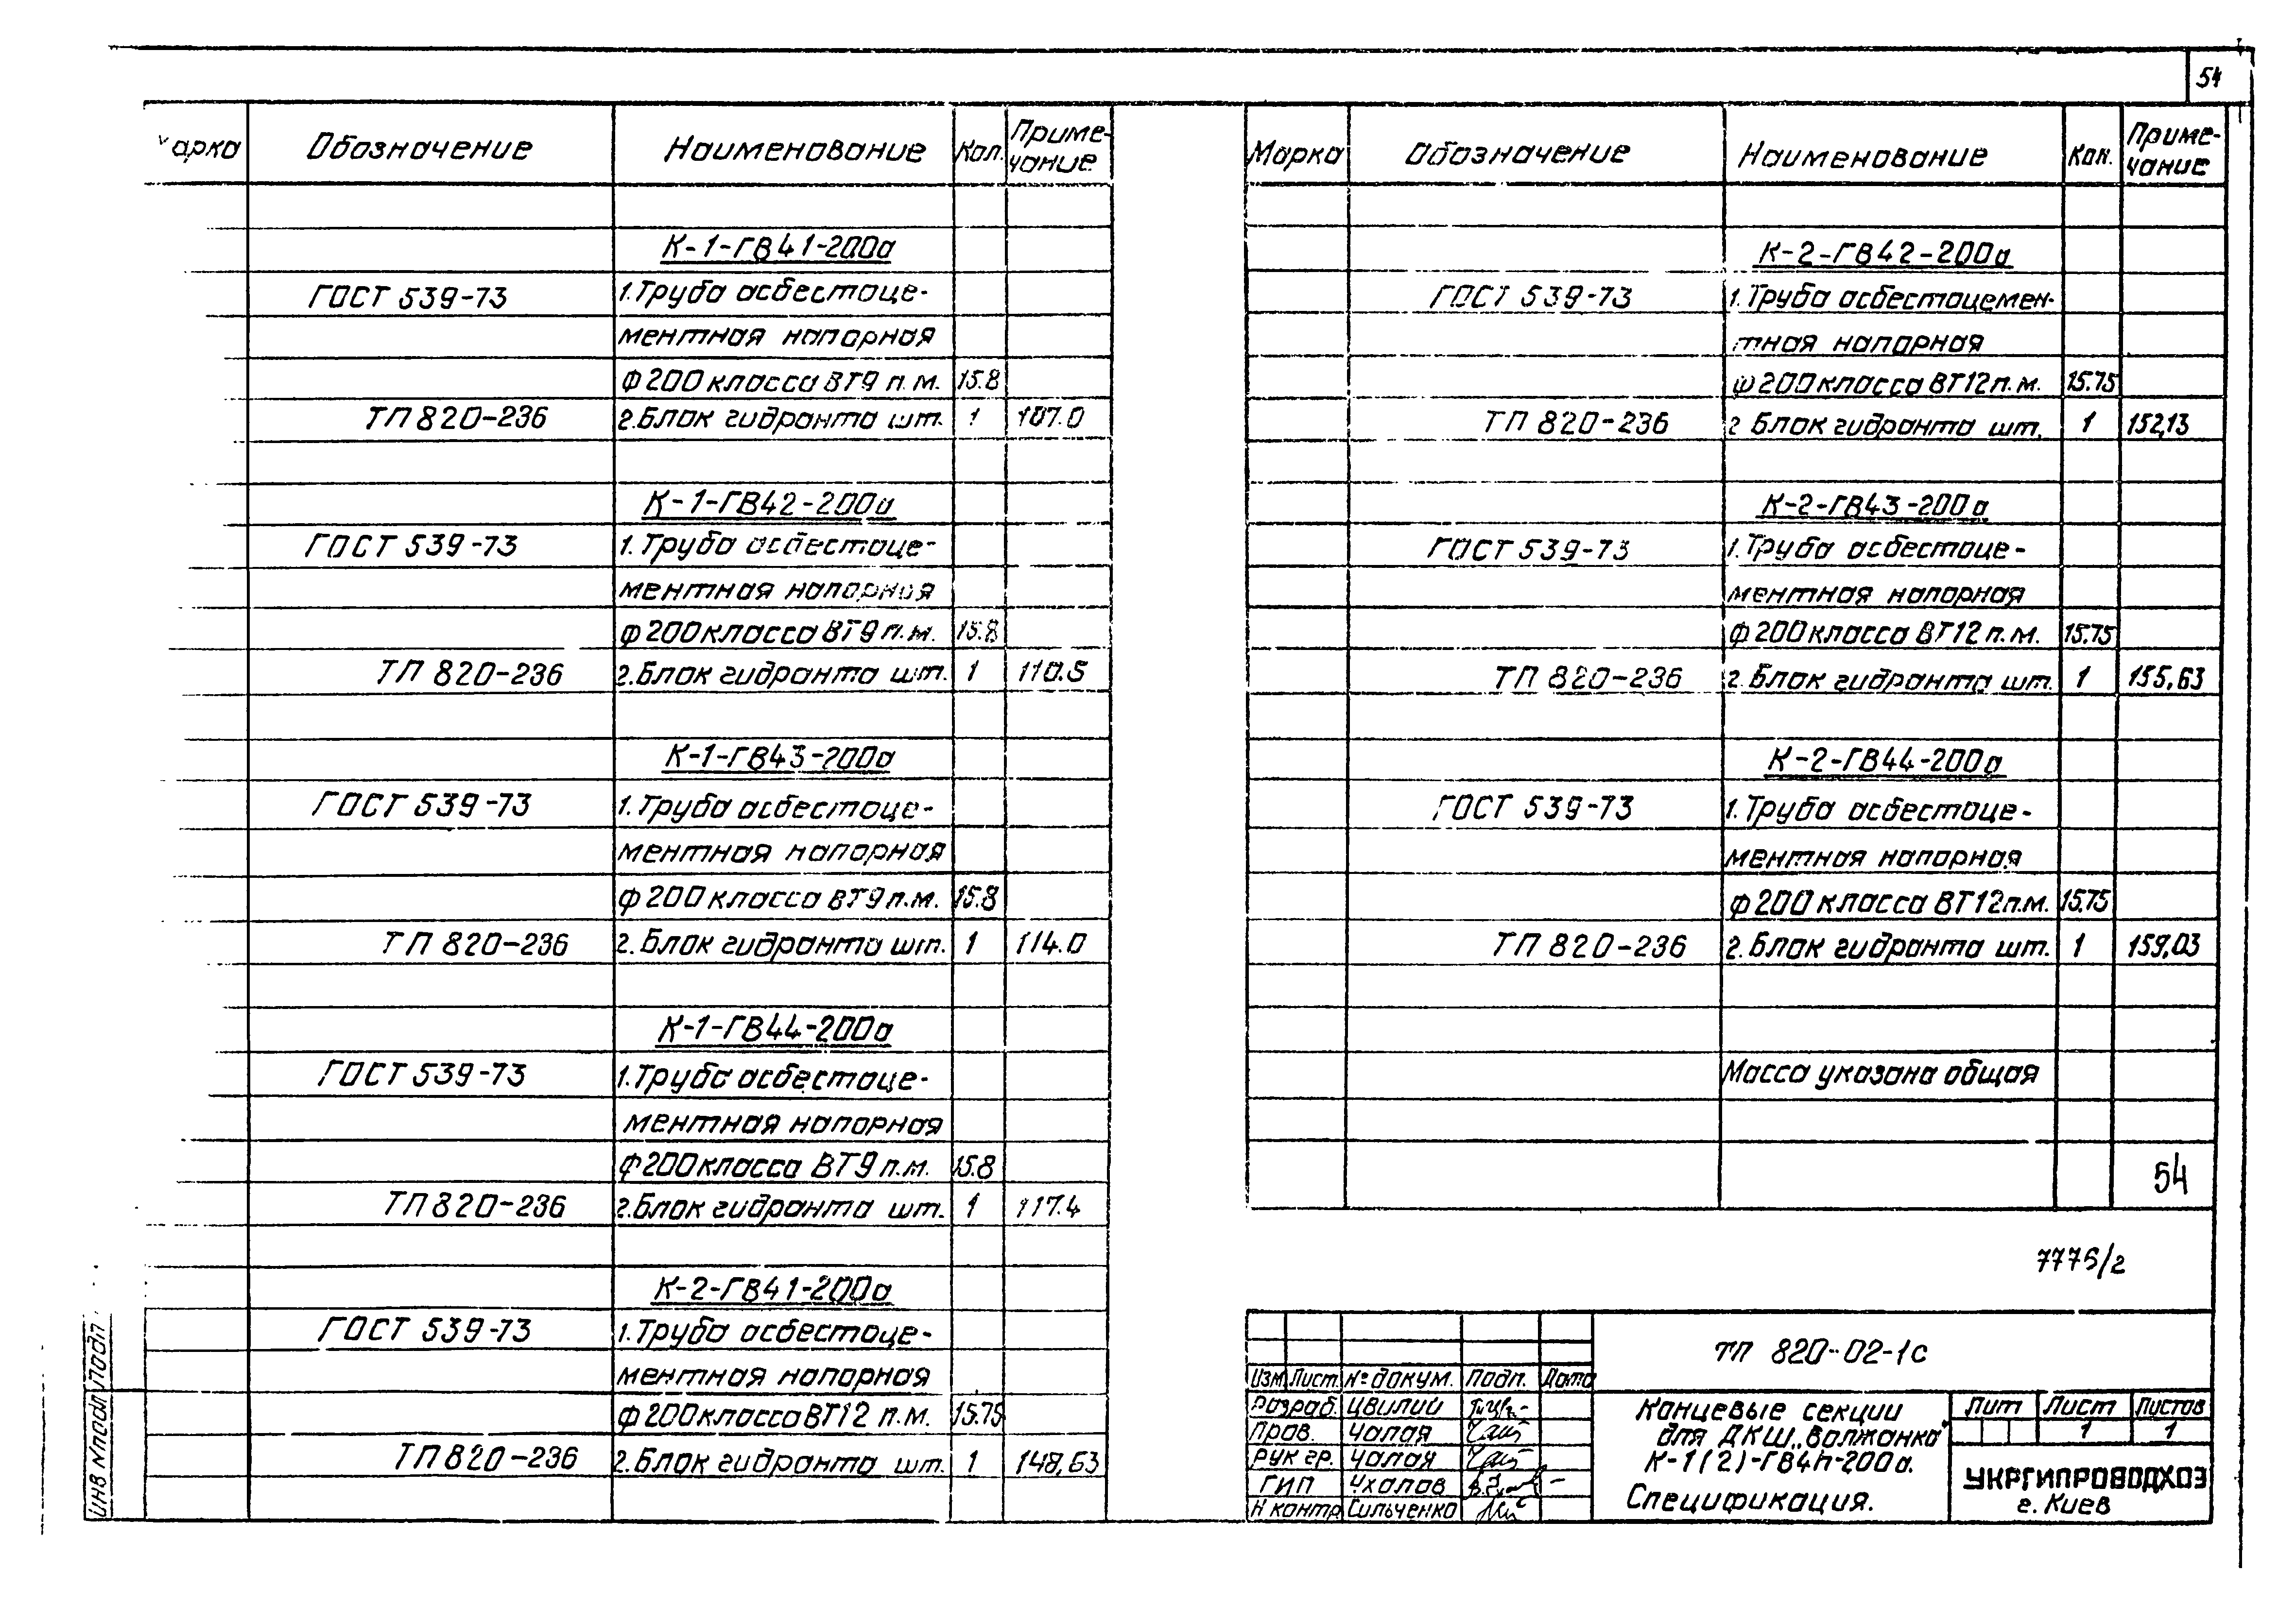 54
Марка Обозначение Наименование Кол. Приме-
чание
К-1-ГВ41-200а
ГОСТ 539-73 1. Труба асбестоце-
ментная напорная
ф 200 класса ВТ9 п.м. 15.8
ТП 820-236 2. Блок гидранта шт. 1 107.0
К-1-ГВ42-200а
ГОСТ 539-73 1. Труба асбестоце-
ментная напорная
ф 200 класса ВТ9 п.м. 15.8
ТП 820-236 2. Блок гидранта шт. 1 110.5
К-1-ГВ43-200а
ГОСТ 539-73 1. Труба асбестоце-
ментная напорная
ф 200 класса ВТ9 п.м. 15.8
ТП 820-236 2. Блок гидранта шт. 1 114.0
К-1-ГВ44-200а
ГОСТ 539-73 1. Труба асбестоце-
ментная напорная
ф 200 класса ВТ9 п.м. 15.8
ТП 820-236 2. Блок гидранта шт. 1 117.4
К-2-ГВ41-200а
ГОСТ 539-73 1. Труба асбестоце-
ментная напорная
ф 200 класса ВТ12 п.м. 15.75
ТП 820-236 2. Блок гидранта шт. 1 148,63
Марка Обозначение Наименование Кол. Приме-
чание
К-2-ГВ42-200а
ГОСТ 539-73 1. Труба асбестоцемен-
тная напорная
ф 200 класса ВТ12 п.м. 15.75
ТП 820-236 2 Блок гидранта шт. 1 152,13
К-2-ГВ43-200а
ГОСТ 539-73 1. Труба асбестоце-
ментная напорная
ф 200 класса ВТ12 п.м. 15.75
ТП 820-236 2. Блок гидранта шт. 1 155,63
К-2-ГВ44-200а
ГОСТ 539-73 1. Труба асбестоце-
ментная напорная
ф 200 класса ВТ12 п.м. 15.75
ТП 820-236 2. Блок гидранта шт. 1 159,03
Масса указана общая
54
7776/2
ТП 820-02-1с
Изм Лист. № докум. Подп. Дата
Разраб. Цвилий
Пров. Чалая
Рук гр. Чалая
ГИП Ухалов
Н контр Сильченко
Концевые секции
для ДКШ „Волжанка"
К-1(2)-ГВ4п-200а.
Спецификация.
Лит Лист Листов
1 1
УКРГИПРОВОДХОЗ
г. Киев
Инв № подл Подп